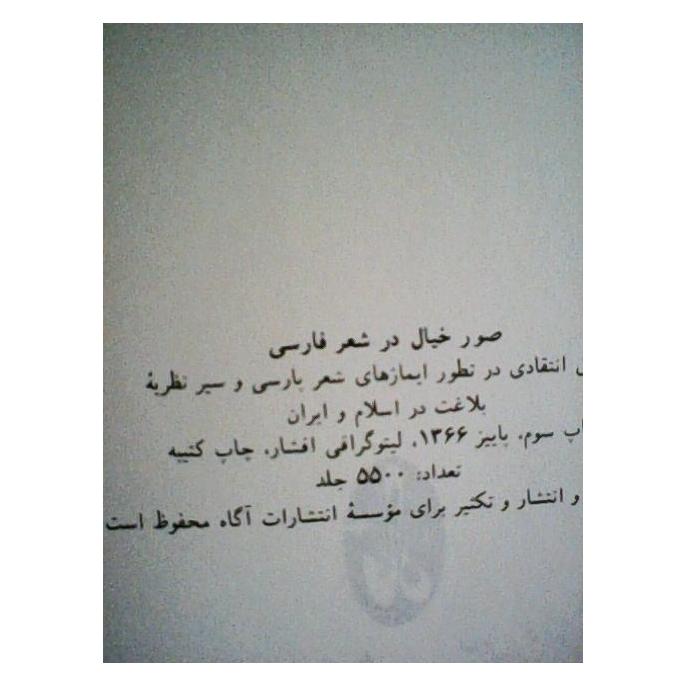 صور خیال در شعر فارسی
انتقادی در تطور ایماژهای شعر پارسی و سیر نظریهٔ
بلاغت در اسلام و ایران
سوم، پاییز ۱۳۶۶، لیتوگرافی افشار، چاپ کتیبه
تعداد: ۵۵۰۰ جلد
و انتشار و تکثیر برای مؤسسهٔ انتشارات آگاه محفوظ است